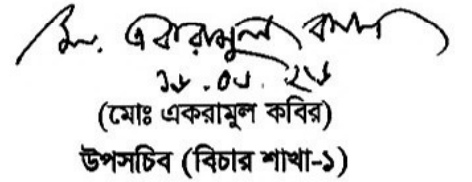 মো. একরামুল কবির
(মোঃ একরামুল কবির)
উপসচিব (বিচার শাখা-১)